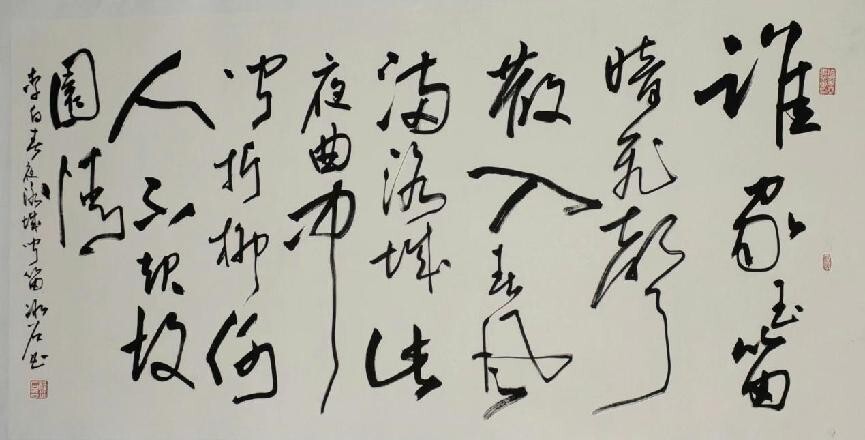 誰家玉笛
暗飛聲
散入春風
滿洛城此
夜曲中
聞折柳何
人不起故
園情
李白春夜洛城聞笛冰石書